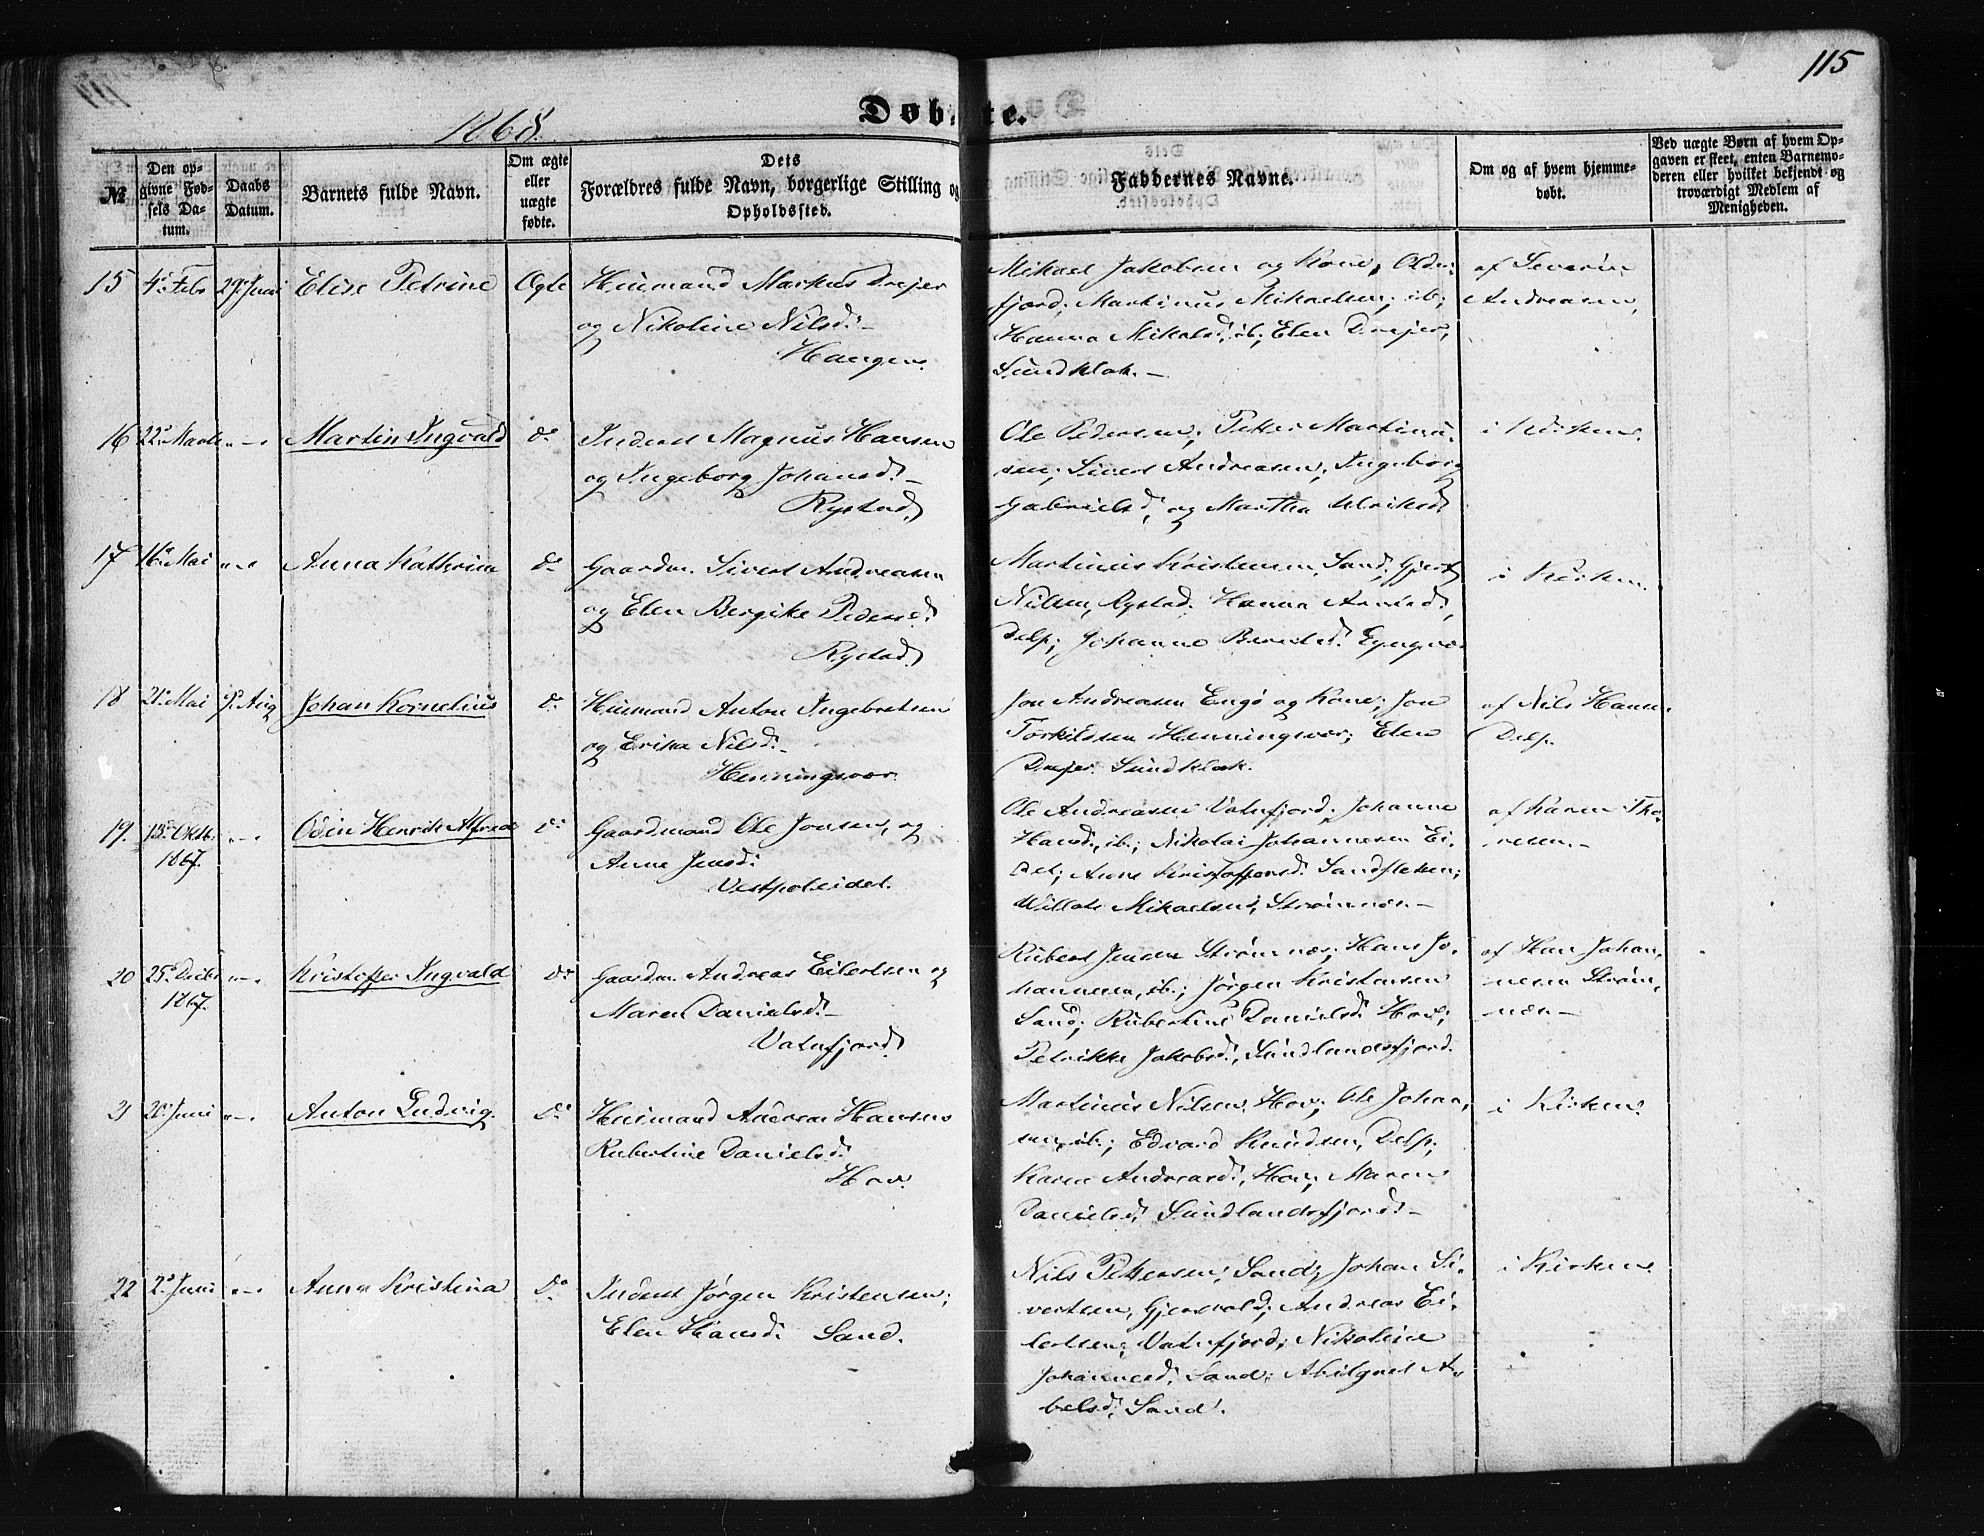 115
1868.
Døbte.
№
Den opgivne Fødsels Datum.
Daabs Datum.
Barnets fulde Navn.
Om ægte eller uægte fødte.
Dets Forældres fulde Navn, borgerlige Stilling og Opholdssted.
Faddernes Navne.
Om og af hvem hjemmedøbt.
Ved uægte Børn af hvem Opgaven er skeet, enten Barnemoderen eller hvilket bekjendt og troværdigt Medlem af Menigheden.
15 4de Febr 29de Juni Elise Petrine Ægte
Huusmand Markus Drejer
og Nikoline Nilsd.
Haugen.
Mikael Jakobsen og Kone, Older-
fjord; Martinus Mikaelsen, ib;
Hanna Mikalsd. ib; Elen Drejer,
Sundklak.
af Severin
Andreasen.
16 22de Marts " Martin Ingvald do
Inderst Magnus Hansen
og Ingeborg Johansd.
Rystad
Ole Pedersen; Petter Martinu-
sen; Sivert Andreasen; Ingeborg
Gabrielsd. og Martha Ulriksd.
i Kirken.
17 16de Mai " Anna Kathrine do
Gaardm. Sivert Andreasen
og Elen Bergithe Pedersd.
Rystad
Martinus Kristensen, Sand; Gjert
Nilsen, Rystad; Hanna
Delp; Johanne
i Kirken.
18 21de Mai 9de Aug Johan Kornelius do
Huusmand Anton Ingebretsen
og Erika Nilsd.
Henningsvær.
Jon Andreasen Engø og Kone; Jon
Torkildsen Henningsvær; Elen
Drejer Sundklak.
af Nils Hansen
Delp.
19. 18de Oktbr 1867. " Odin Henrik Alfred do
Gaardmand Ole Jonsen, og
Anne Jensd.
Vestpoleidet.
Ole Andreasen Vatnfjord; Johanne
Hansd., ib.; Nikolai Johannesen Ei-
det; Anne Kristoffersd. Sandsletten;
Mikaelsen, Strømnæs
af Karen Tho-
nesen.
20 25de Decbr 1867. " Kristoffer Ingvald do
Gaardm. Andreas Eilertsen og
Maren Danielsd.
Vatnfjord
Rubert Jensen Strømnæs; Hans Jo-
hannesen, ib.; Jørgen Kristensen
Sand; Rubertine Danielsd. Hov;
Petrikke Jakobsd., Sundlandsfjord.
af Han Johan-
nesen Strøm-
næs
21 20de Juni " Anton Ludvig. do
Huusmand Andreas Hansen
Rubertine Danielsd.
Hov.
Martinus Nilsen, Hov; Ole Johan-
sen, ib.; Edvard Knudsen, Delp;
Karen Andreasd., Hov; Maren
Danielsd. Sundlandsfjord.
i Kirken.
22 2de Juni " Anna Kristina do
Inderst Jørgen Kristensen;
Elen Hansd. Sand.
Nils Pettersen, Sand; Johan Si-
vertsen, Gjersvold; Andreas Ei-
lertsen, Vatnfjord; Nikoline
Johannesd. Sand; Abilgael A-
belsd., Sand.
i Kirken.